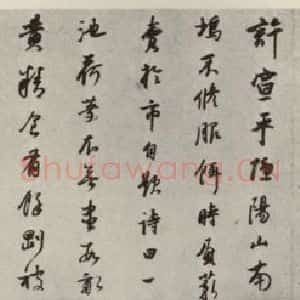 許宣平隱陽山南
塢不修服餌時負薪
賣於市自詠詩曰一
池荷葉衣無盡數畝
黃精食有餘剛被
Shufawang.CN